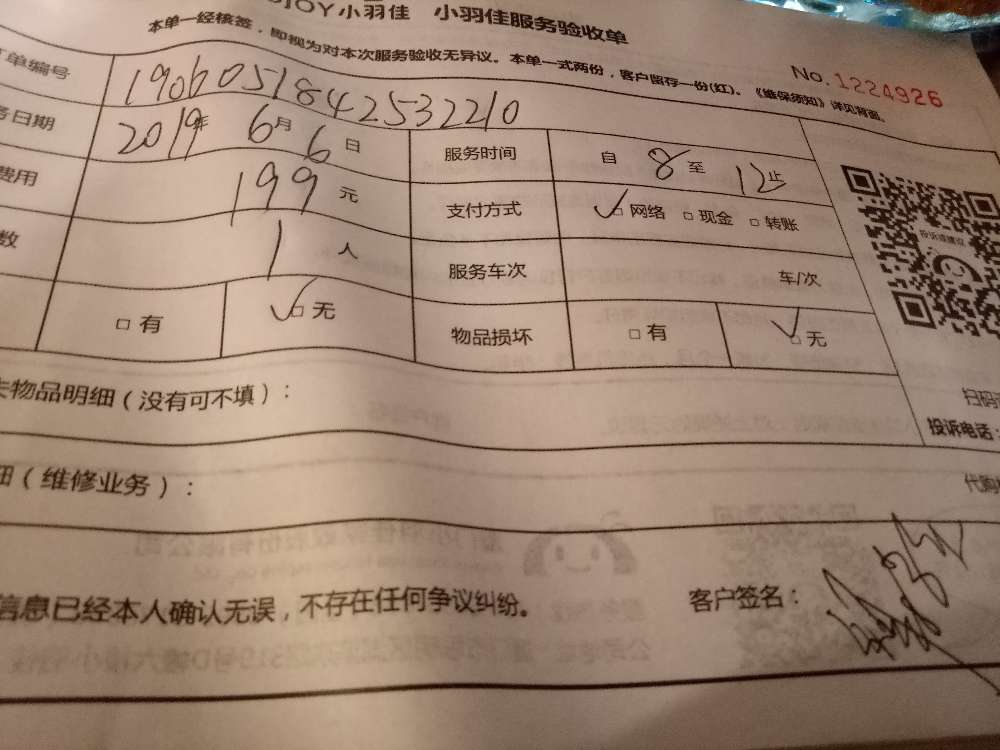 JOY小羽佳 小羽佳服务验收单
本单一经核签，即视为对本次服务验收无异议。本单一式两份，客户留存一份(红)。《维保须知》详见背面。
No.1224926
单编号 190605184253221 0
务日期 2019年 6月 6日 服务时间 自 8 至 12止
费用 199元 支付方式 ✓□网络 □现金 □转账
数 1人 服务车次 车/次
□有 ✓□无 物品损坏 □有 ✓□无
投诉或建议
物品明细（没有可不填）：
扫码
投诉电话：
细（维修业务）：
代购
信息已经本人确认无误，不存在任何争议纠纷。 客户签名：